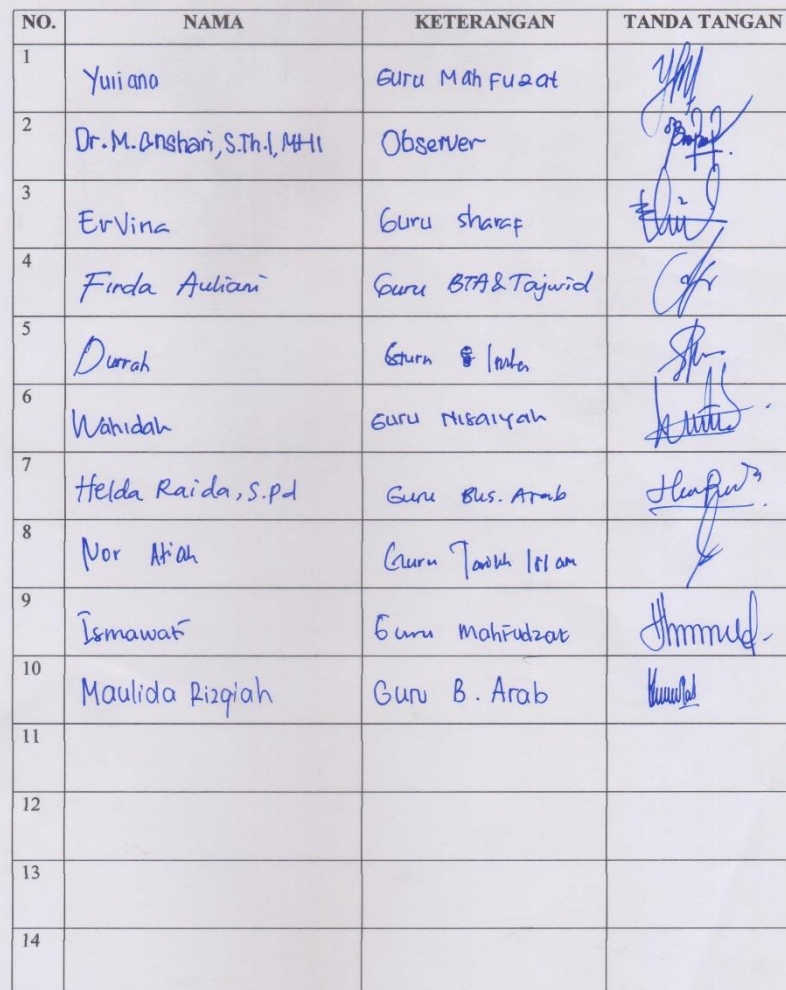 NO. NAMA KETERANGAN TANDA TANGAN
1 Yuliana Guru Mahfuzat
2 Dr. M. Anshari, S.Th.I, MHI Observer
3 Ervina Guru sharaf
4 Finda Auliani Guru BTA & Tajwid
5 Durrah Guru
6 Wahidah Guru Nisaiyah
7 Helda Raida, S.Pd Guru Bhs. Arab
8 Nor Atiah Guru Tarikh Islam
9 Ismawati Guru Mahfudzat
10 Maulida Rizqiah Guru B. Arab
11
12
13
14